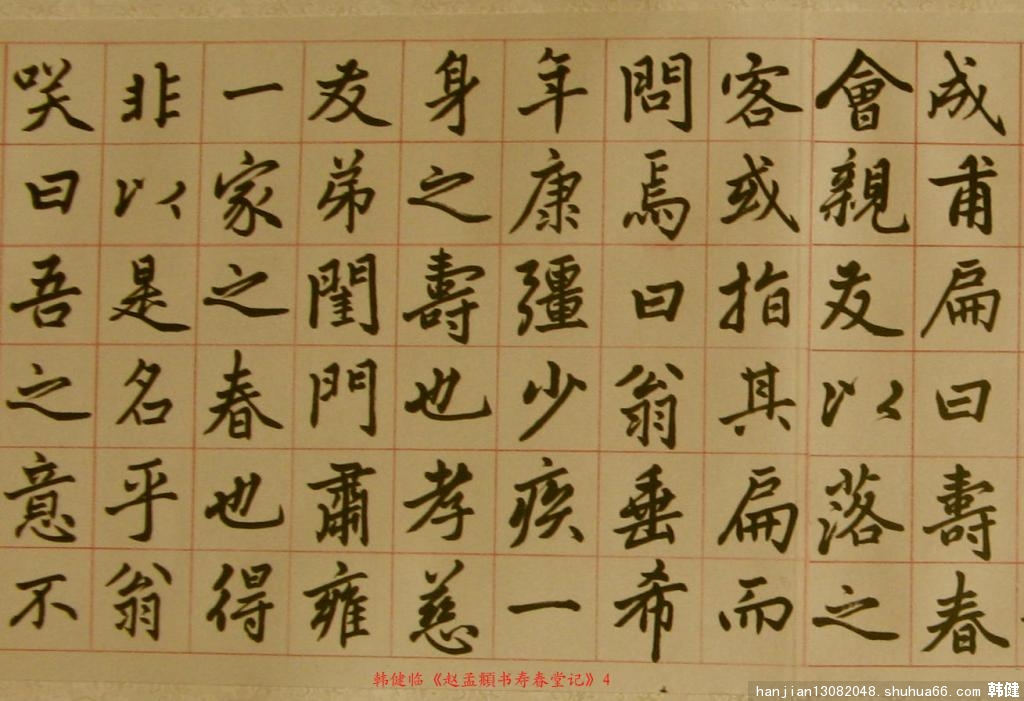 成甫扁曰壽春
會親友以落之
客或指其扁而
問焉曰翁垂希
年康彊少疾一
身之壽也孝慈
友弟閨門肅雍
一家之春也得
非以是名乎翁
笑曰吾之意不
韩健临《赵孟頫书寿春堂记》4
hanjian13082048.shuhua66.com 韩健